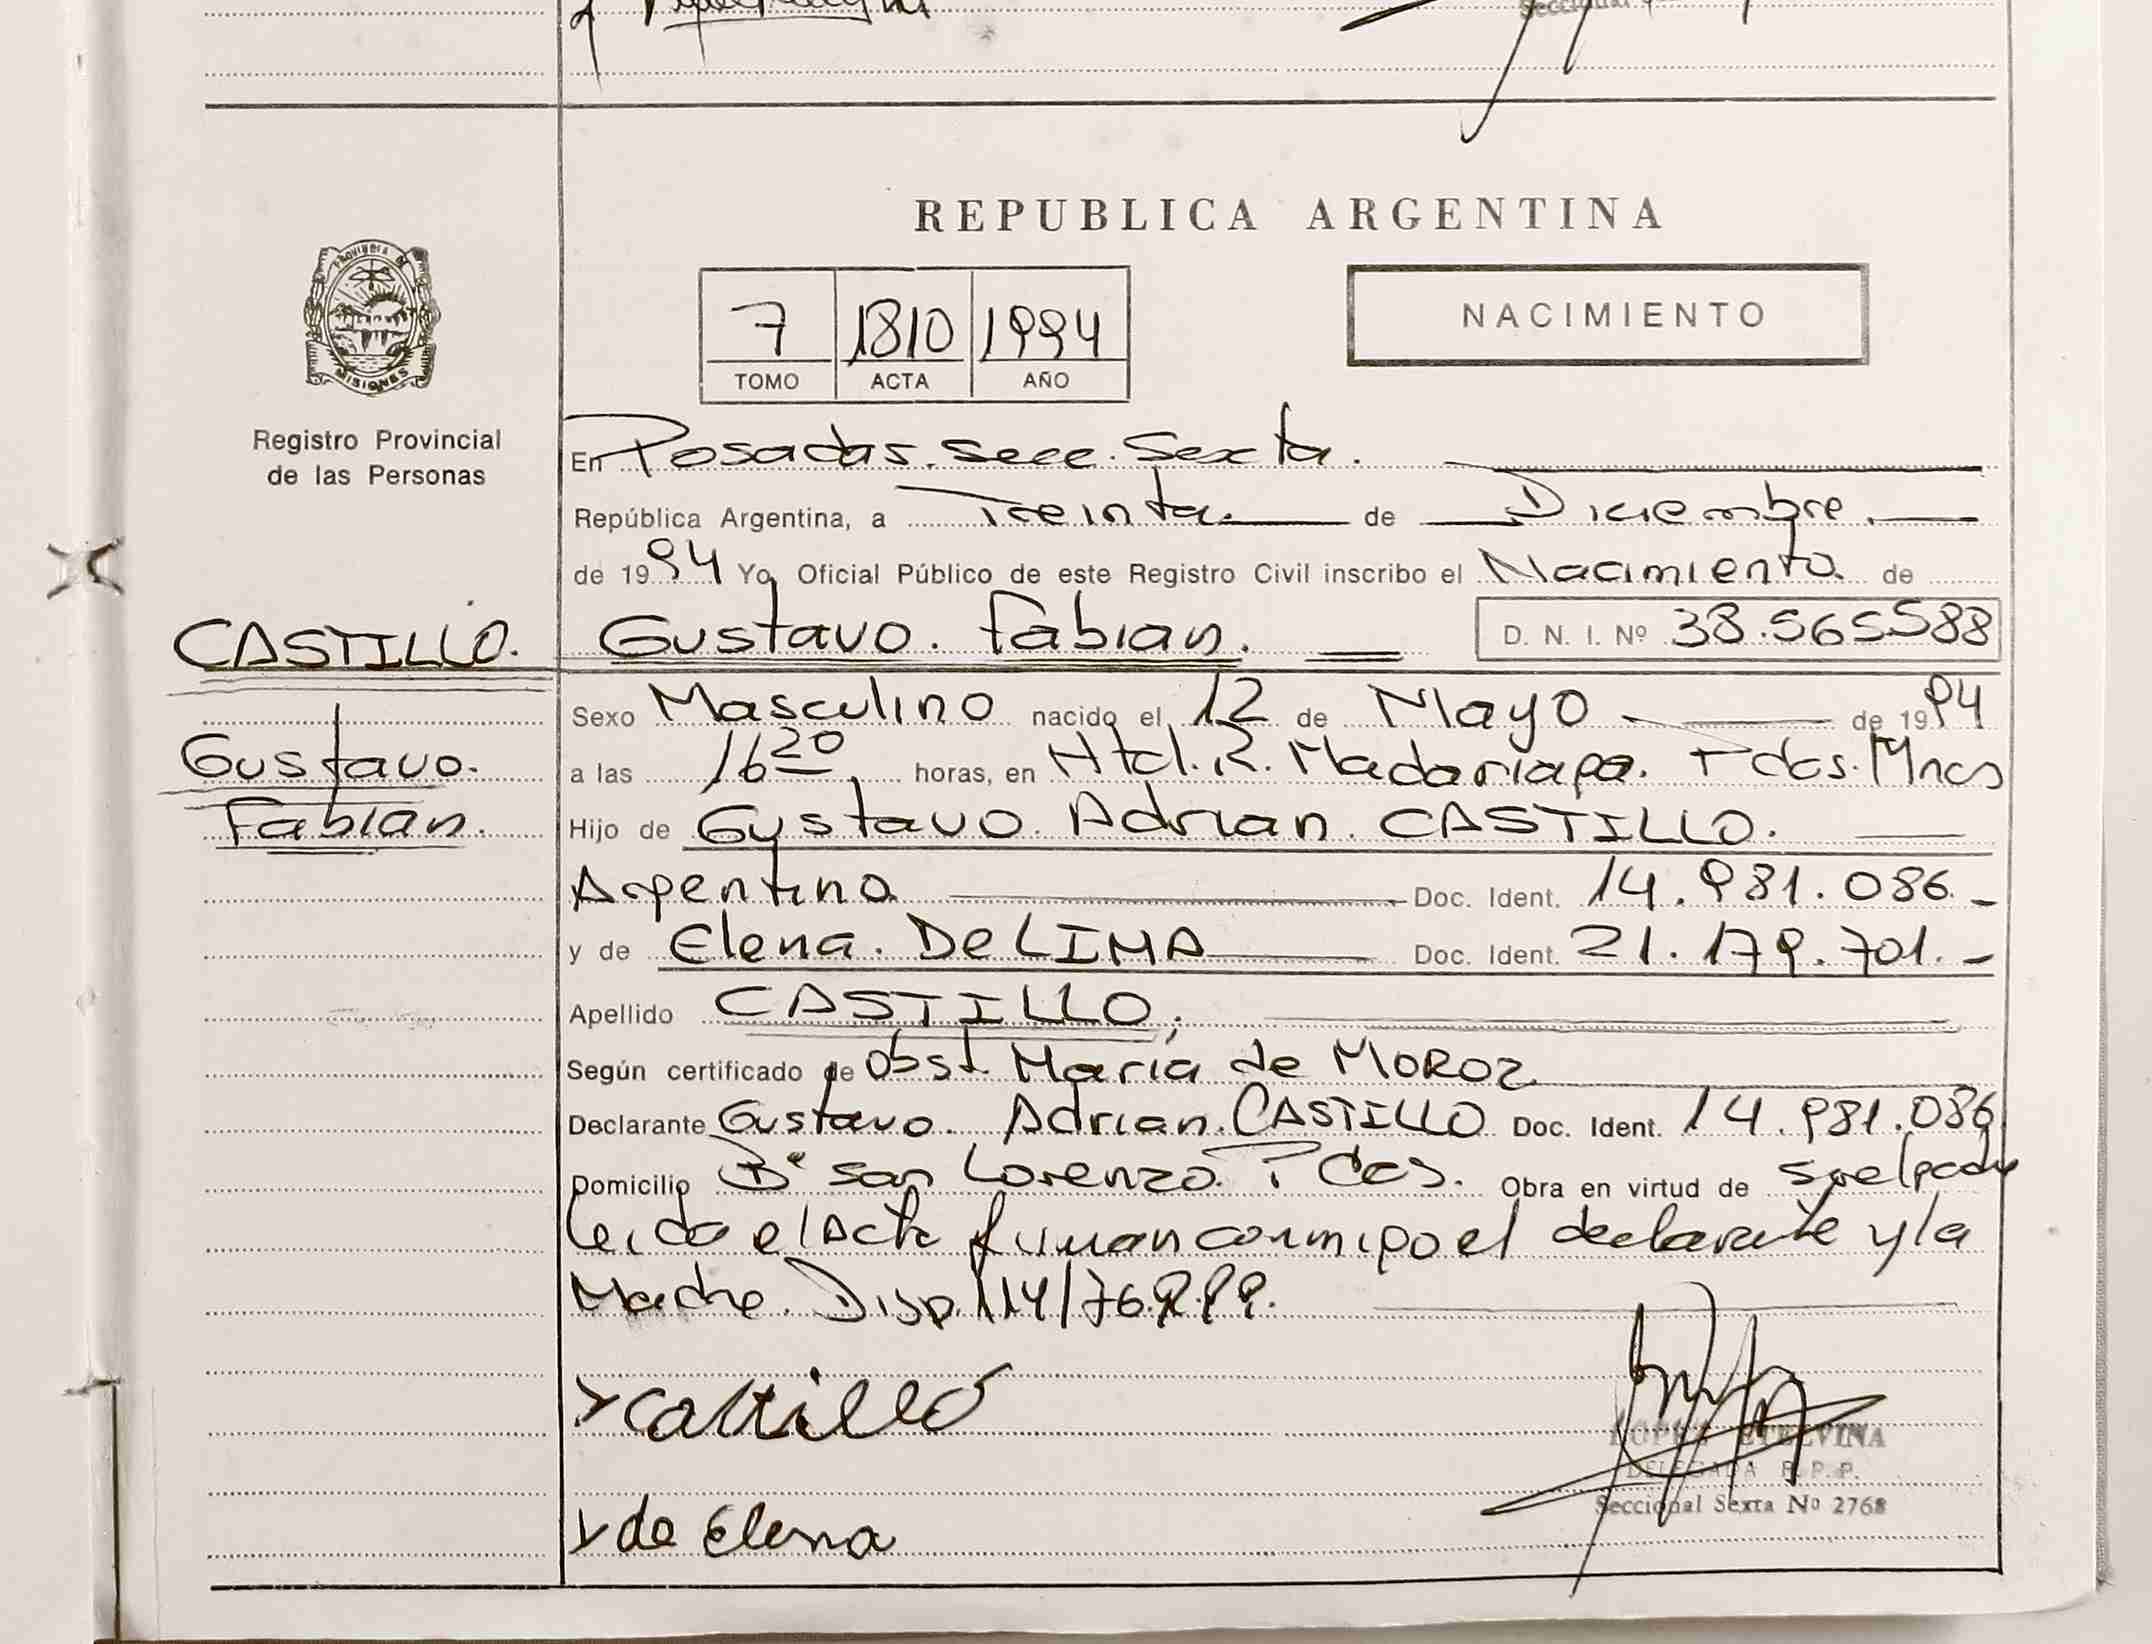 Seccional
REPUBLICA ARGENTINA
PROVINCIA DE
MISIONES
7 1810 1994
TOMO ACTA AÑO
NACIMIENTO
Registro Provincial
de las Personas
En Posadas. Secc. Sexta.
República Argentina, a Treinta de Diciembre.
de 1994 Yo, Oficial Público de este Registro Civil inscribo el Nacimiento de
CASTILLO. Gustavo. Fabian. D. N. I. Nº 38.565588
Sexo Masculino nacido el 12 de Mayo de 1994
Gustavo.
a las 16 20 horas, en Htal. R. Madariaga. Pdas. Mnes
Fabian. Hijo de Gustavo. Adrian. CASTILLO.
Argentino Doc. Ident. 14.981.086.-
y de Elena. De LIMA Doc. Ident. 21.179.701.-
Apellido CASTILLO;
Según certificado de Obst. Maria de MOROZ
Declarante Gustavo. Adrian. CASTILLO Doc. Ident. 14.981.086
Domicilio Bº San Lorenzo. Pdas. Obra en virtud de ser el padre
Leido el Acta firman conmigo el declarante y la
Madre. Disp. 114/76.
Castillo
LOPEZ ETELVINA
DELEGADA R.P.P.
Seccional Sexta No 2768
de Elena